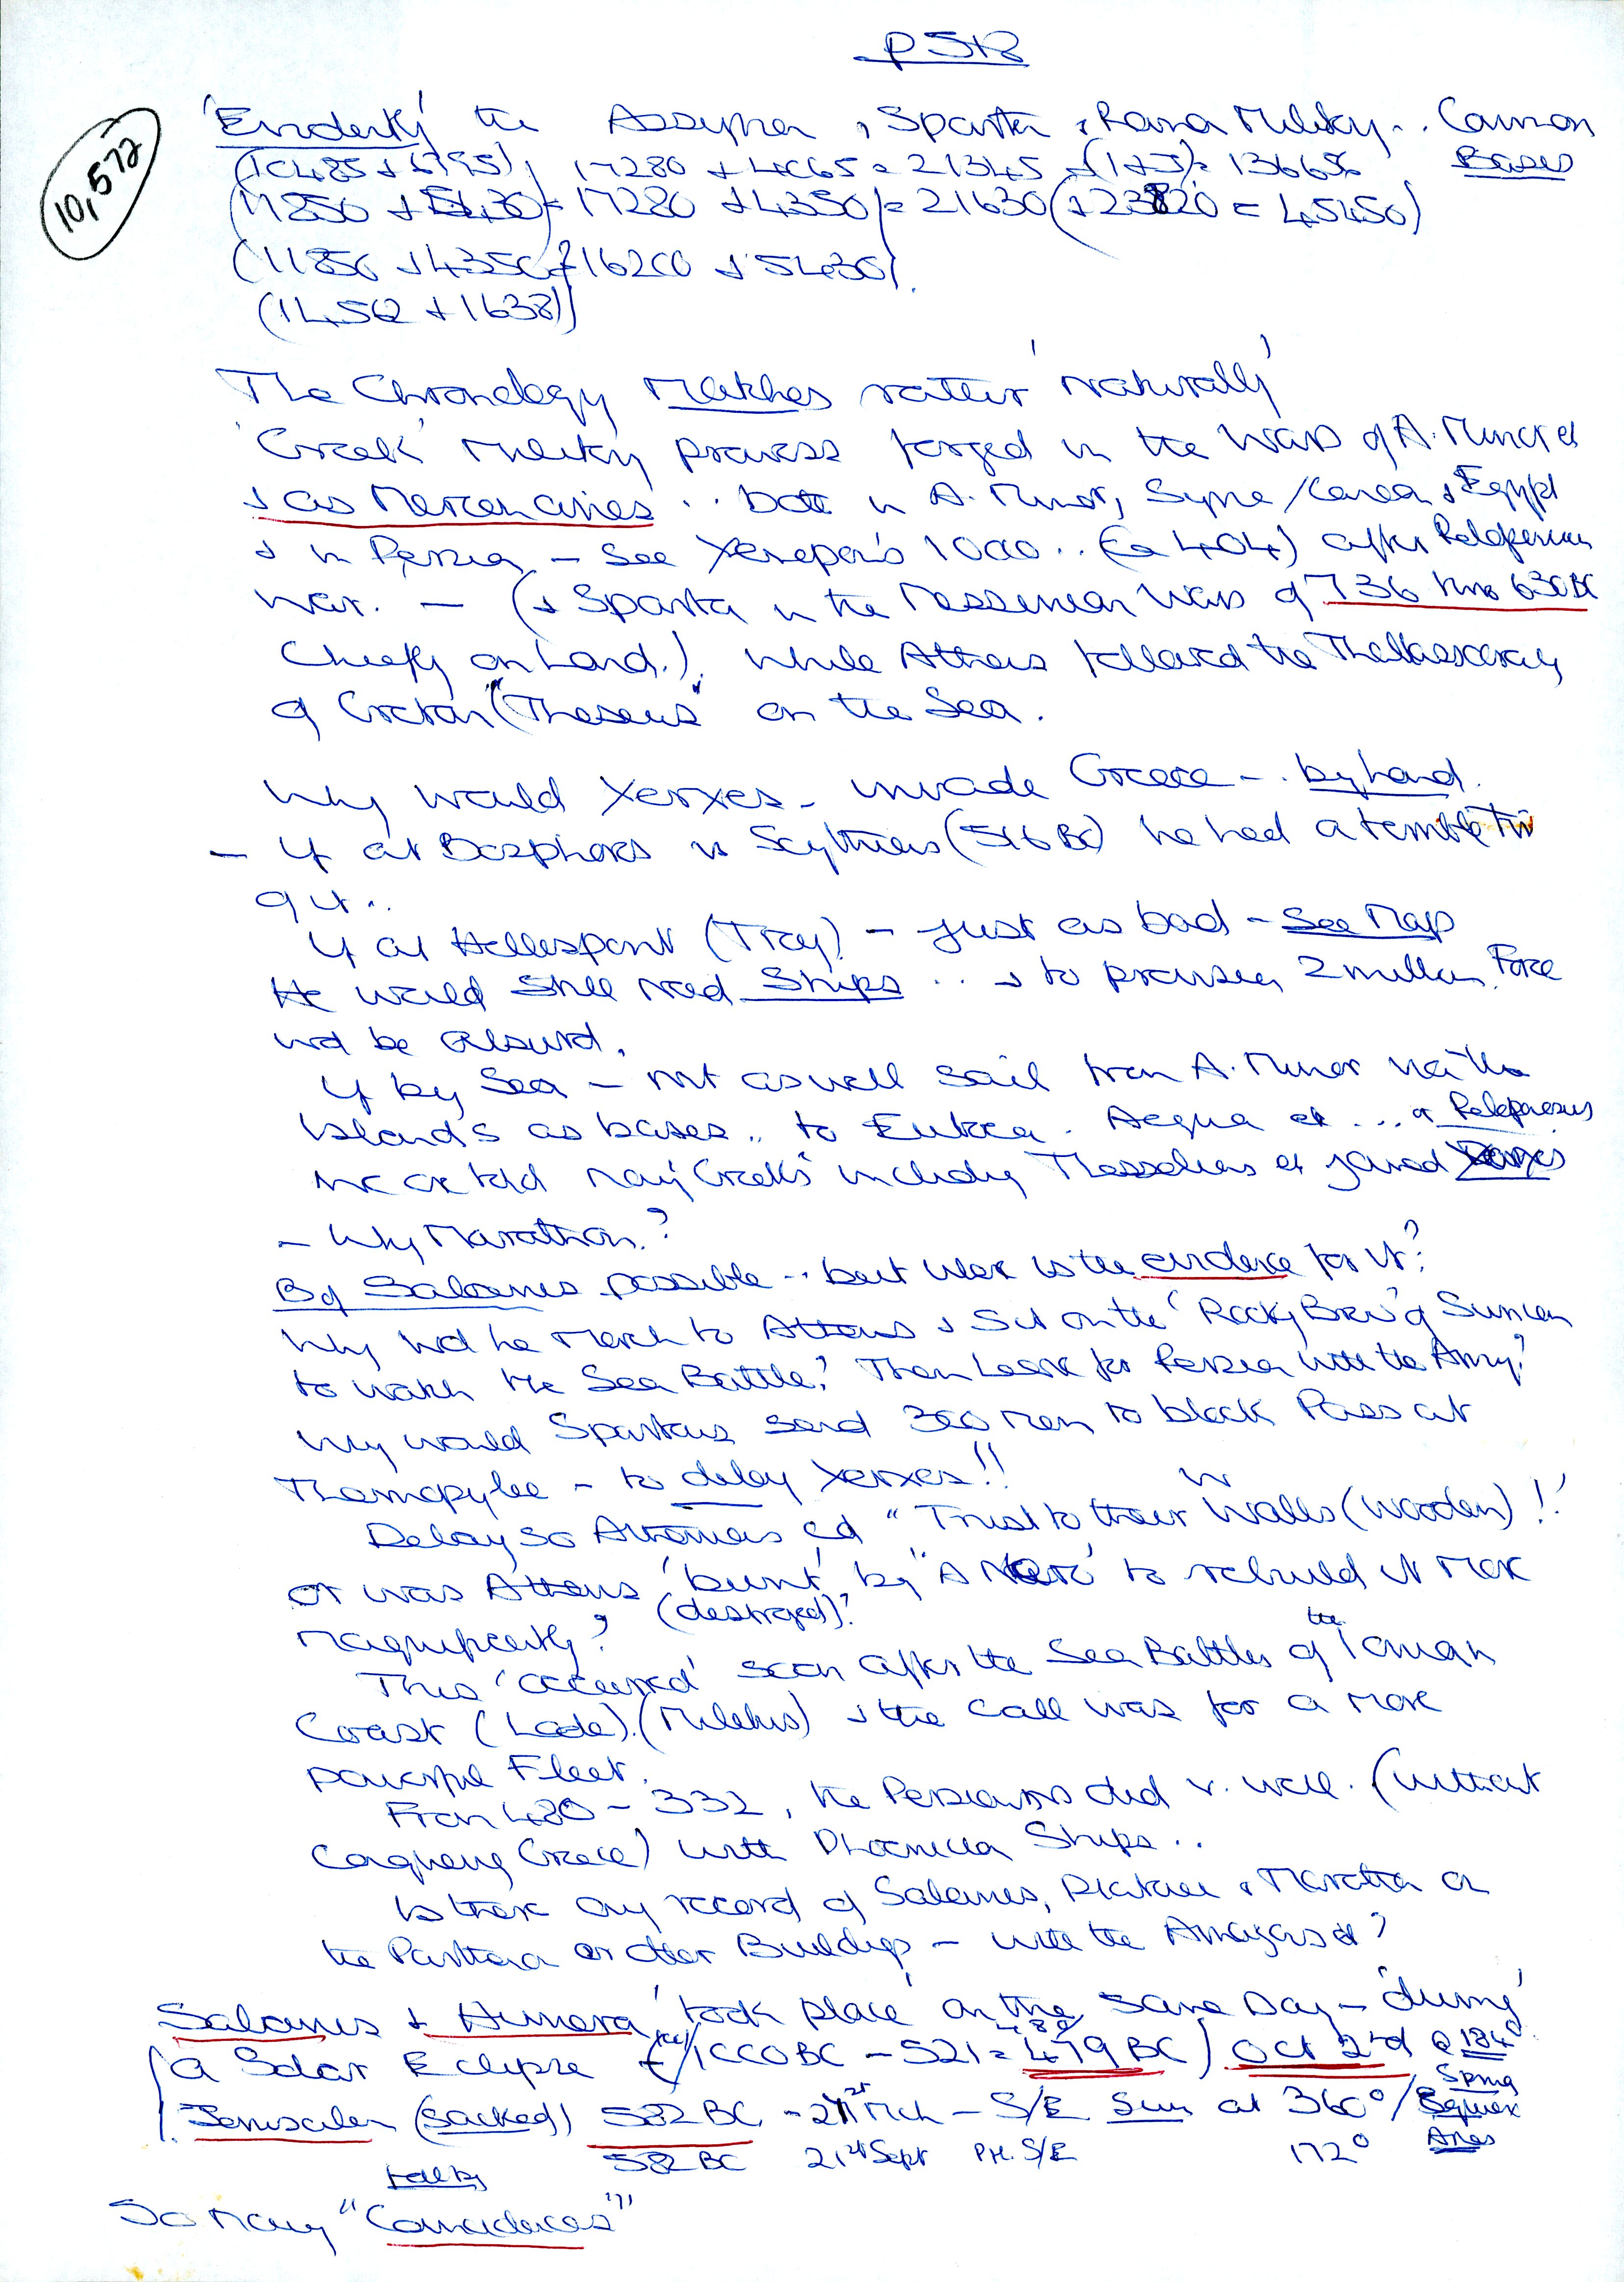 p 518
10,572
'Evidently' the Assyrian, Spartan & Roman Military .. Common
Bases
(10485 + 6795), 17280 + 4065 = 21345
(11850 + 5430) = 17280 + 4350) = 21630 (+ 23820 = 45450)
(11850 + 4350 = 16200 + 5430)
(14562 + 1638)
The Chronology Matches rather 'naturally'
'Greek' Military prowess forged in the Wars of A. Minor et
& as Mercenaries .. both in A. Minor, Syria / Canaan & Egypt
& in Persia - See Xenepon's 1000 .. (ca 404) after Peloponnesian
War. - (& Sparta in the Messenian Wars of 736 thro 630 BC
Chiefly on Land.) while Athens followed the Thallasocracy
of Cretan ("Theseus" on the Sea.
Why would Xerxes - invade Greece - .. by Land.
- If at Bosphoros vs Scythians (516 BC) he had a terrible time
of it ..
If at Hellespont (Troy) - just as bad - See Map
He would still need Ships .. & to provision 2 million Force
wd be absurd.
If by Sea - mt as well sail from A. Minor via the
Islands as bases .. to Euboea. Aegina et ... or Peloponesus
We are told many 'Greeks' including Thessalians et joined Xerxes
- Why Marathon?
By Salamis possible .. but where is the evidence for it?
Why wd he March to Athens & Sit on the 'Rocky Brow' of Sunion
to watch the Sea Battle? Then Leave for Persia with the Army?
Why would Spartans send 300 men to block Pass at
Thermopylae - to delay Xerxes!!
Delay so Athenians cd "Trust to their Walls (wooden)!!
or was Athens 'burnt' by "A Nero' to rebuild it More
(destroyed)?
Magnificently?
This 'occurred' soon after the Sea Battles of the Ionian
Coast (Lade). (Miletus) & the call was for a more
powerful Fleet.
From 480 - 332, the Persians did v. well. (without
Conquering Greece) with Phoenician Ships ..
Is there any record of Salamis, Plataea & Marathon on
the Parthenon or other Buildings - with the Amazons et?
Salamis & Himera 'took place' on the same Day - 'during'
a Solar Eclipse (1000 BC - 521 = 479 BC) Oct 2nd @ 184°
Jerusalem (sacked) 582 BC - 21st Mch - S/E Sun at 360° / Spring Equinox
582 BC 21st Sept PH. S/E 172° Aries
So Many "Coincidences"!